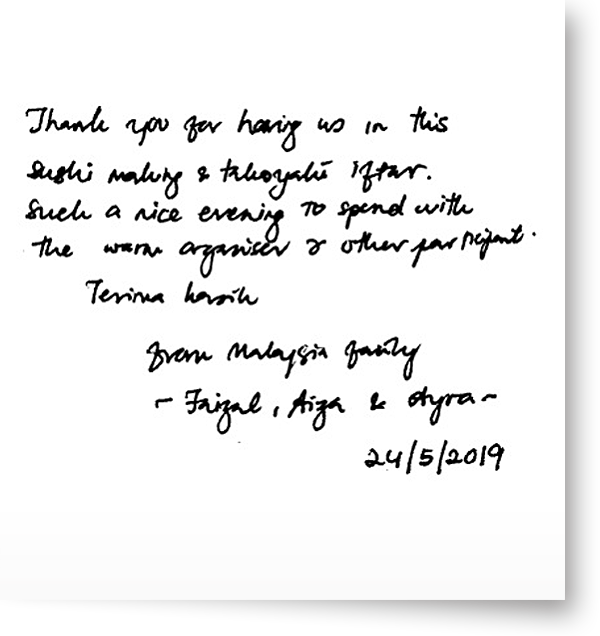 Thank you for having us in this
Sushi making & takoyaki iftar.
Such a nice evening to spend with
the warm organiser & other participant.
Terima kasih
from Malaysia family
~ Faizal, Aiza & Ayra ~
24/5/2019